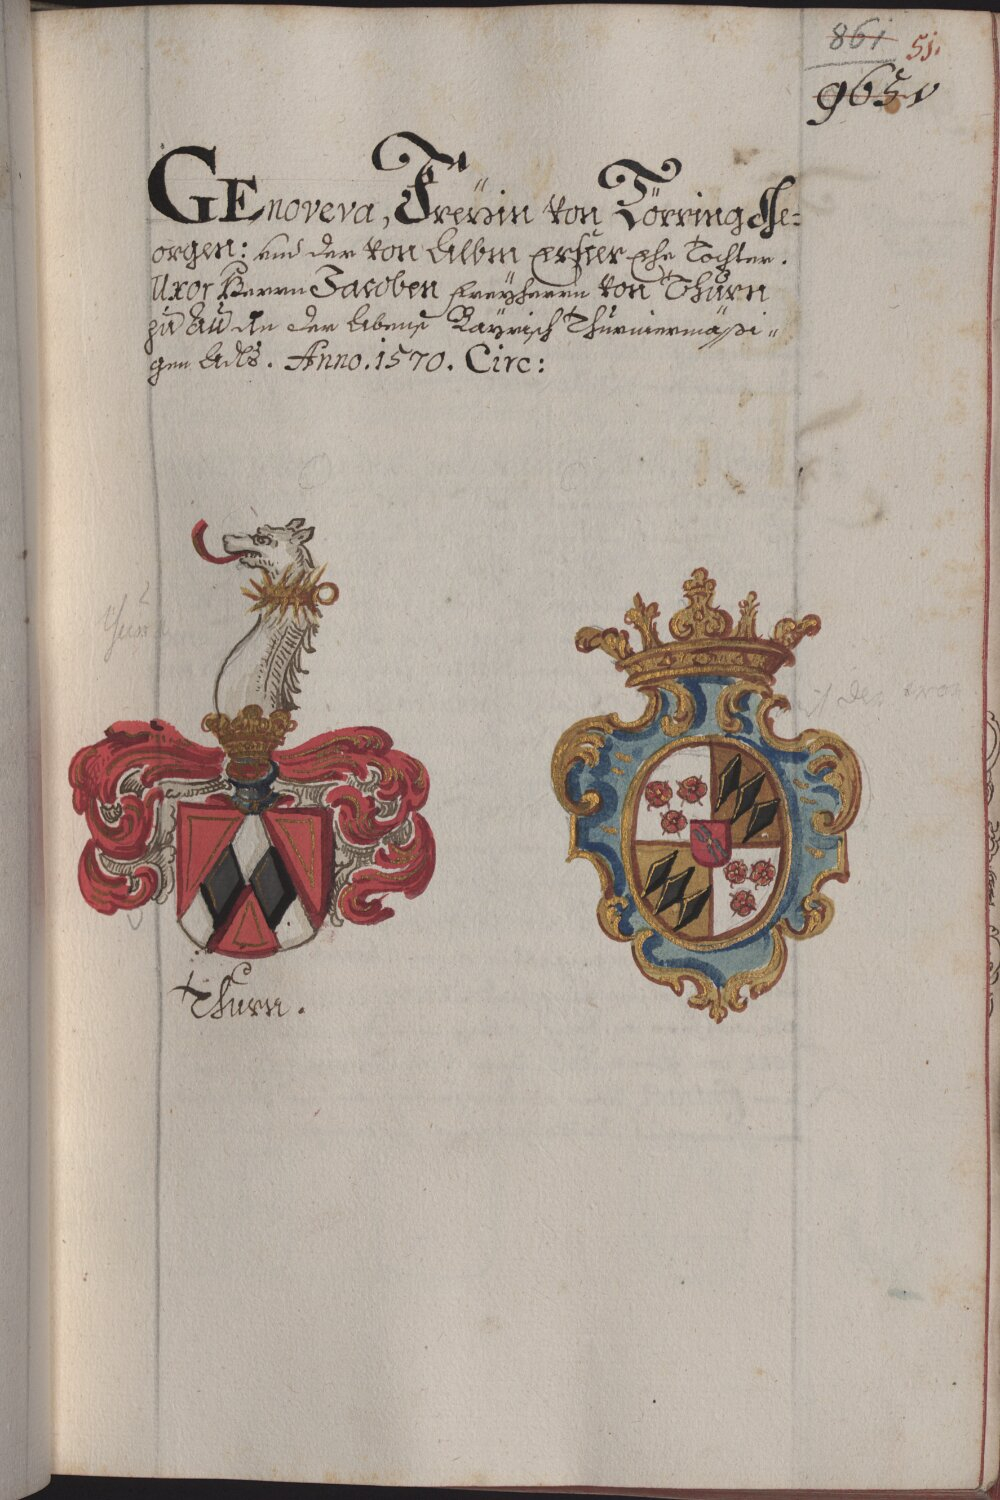 861 51.
965 v
GEnoveva, Freÿin von Törring Ge=
orgen: und der von Alben Erster Ehe Tochter.
Uxor Herrn Jacoben Freÿherrn von Thürn
zu Au in der Bayrisch Thurniermäßi=
gen Adls. Anno. 1570. Circ:
Thurn.